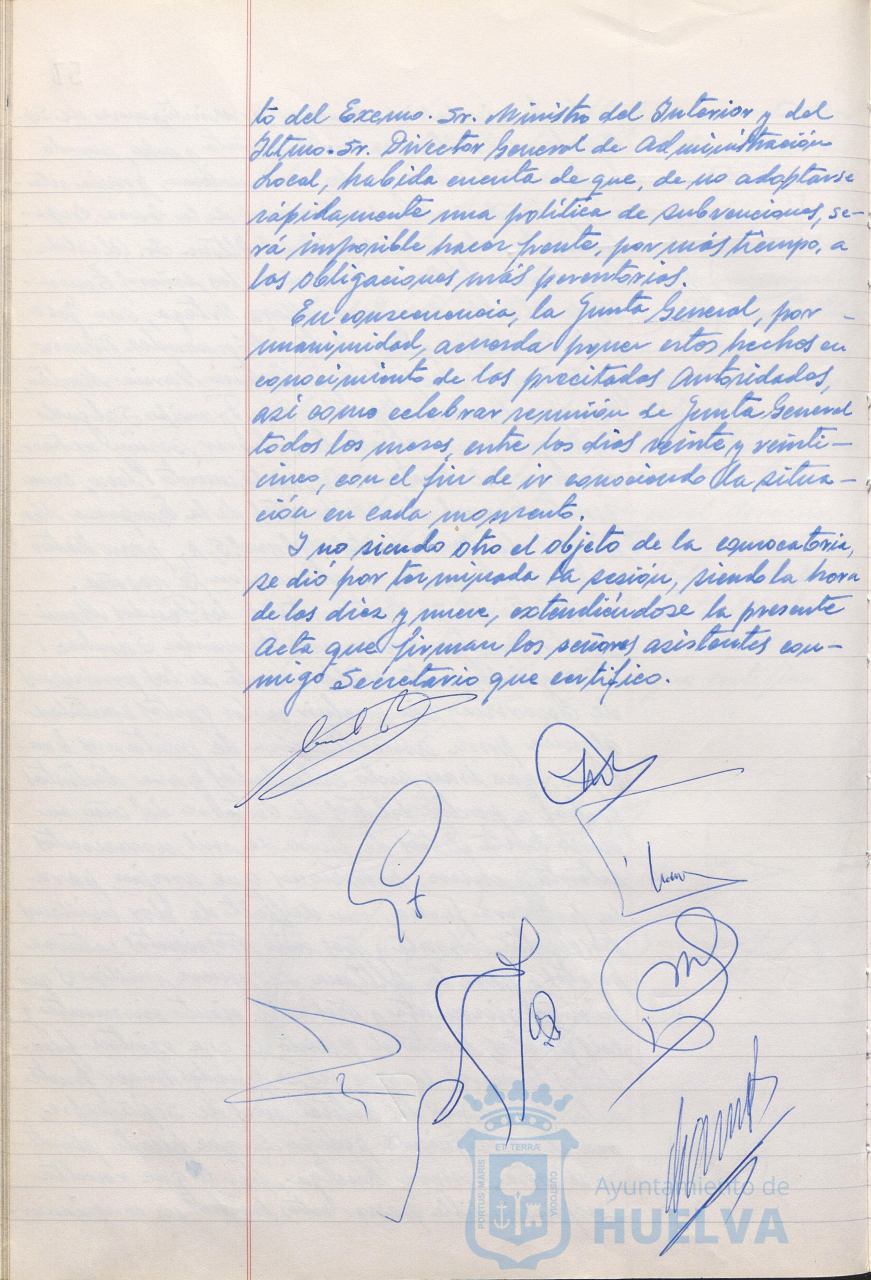 to del Excmo. Sr. Ministro del Interior y del
Iltmo. Sr. Director General de Administración
Local, habida cuenta de que, de no adoptarse
rápidamente una política de subvenciones, se-
rá imposible hacer frente, por más tiempo, a
las obligaciones más perentorias.
En consecuencia, la Junta General, por -
unanimidad, acuerda poner estos hechos en
conocimiento de las precitadas Autoridades,
así como celebrar reunión de Junta General
todos los meses, entre los días veinte y veinti-
cinco, con el fin de ir conociendo la situa-
ción en cada momento.
Y no siendo otro el objeto de la convocatoria,
se dió por terminada la sesión, siendo la hora
de las diez y nueve, extendiéndose la presente
Acta que firman los señores asistentes con-
migo Secretario que certifico.
PORTUS MARIS
ET TERRÆ
CUSTODIA
Ayuntamiento de
HUELVA